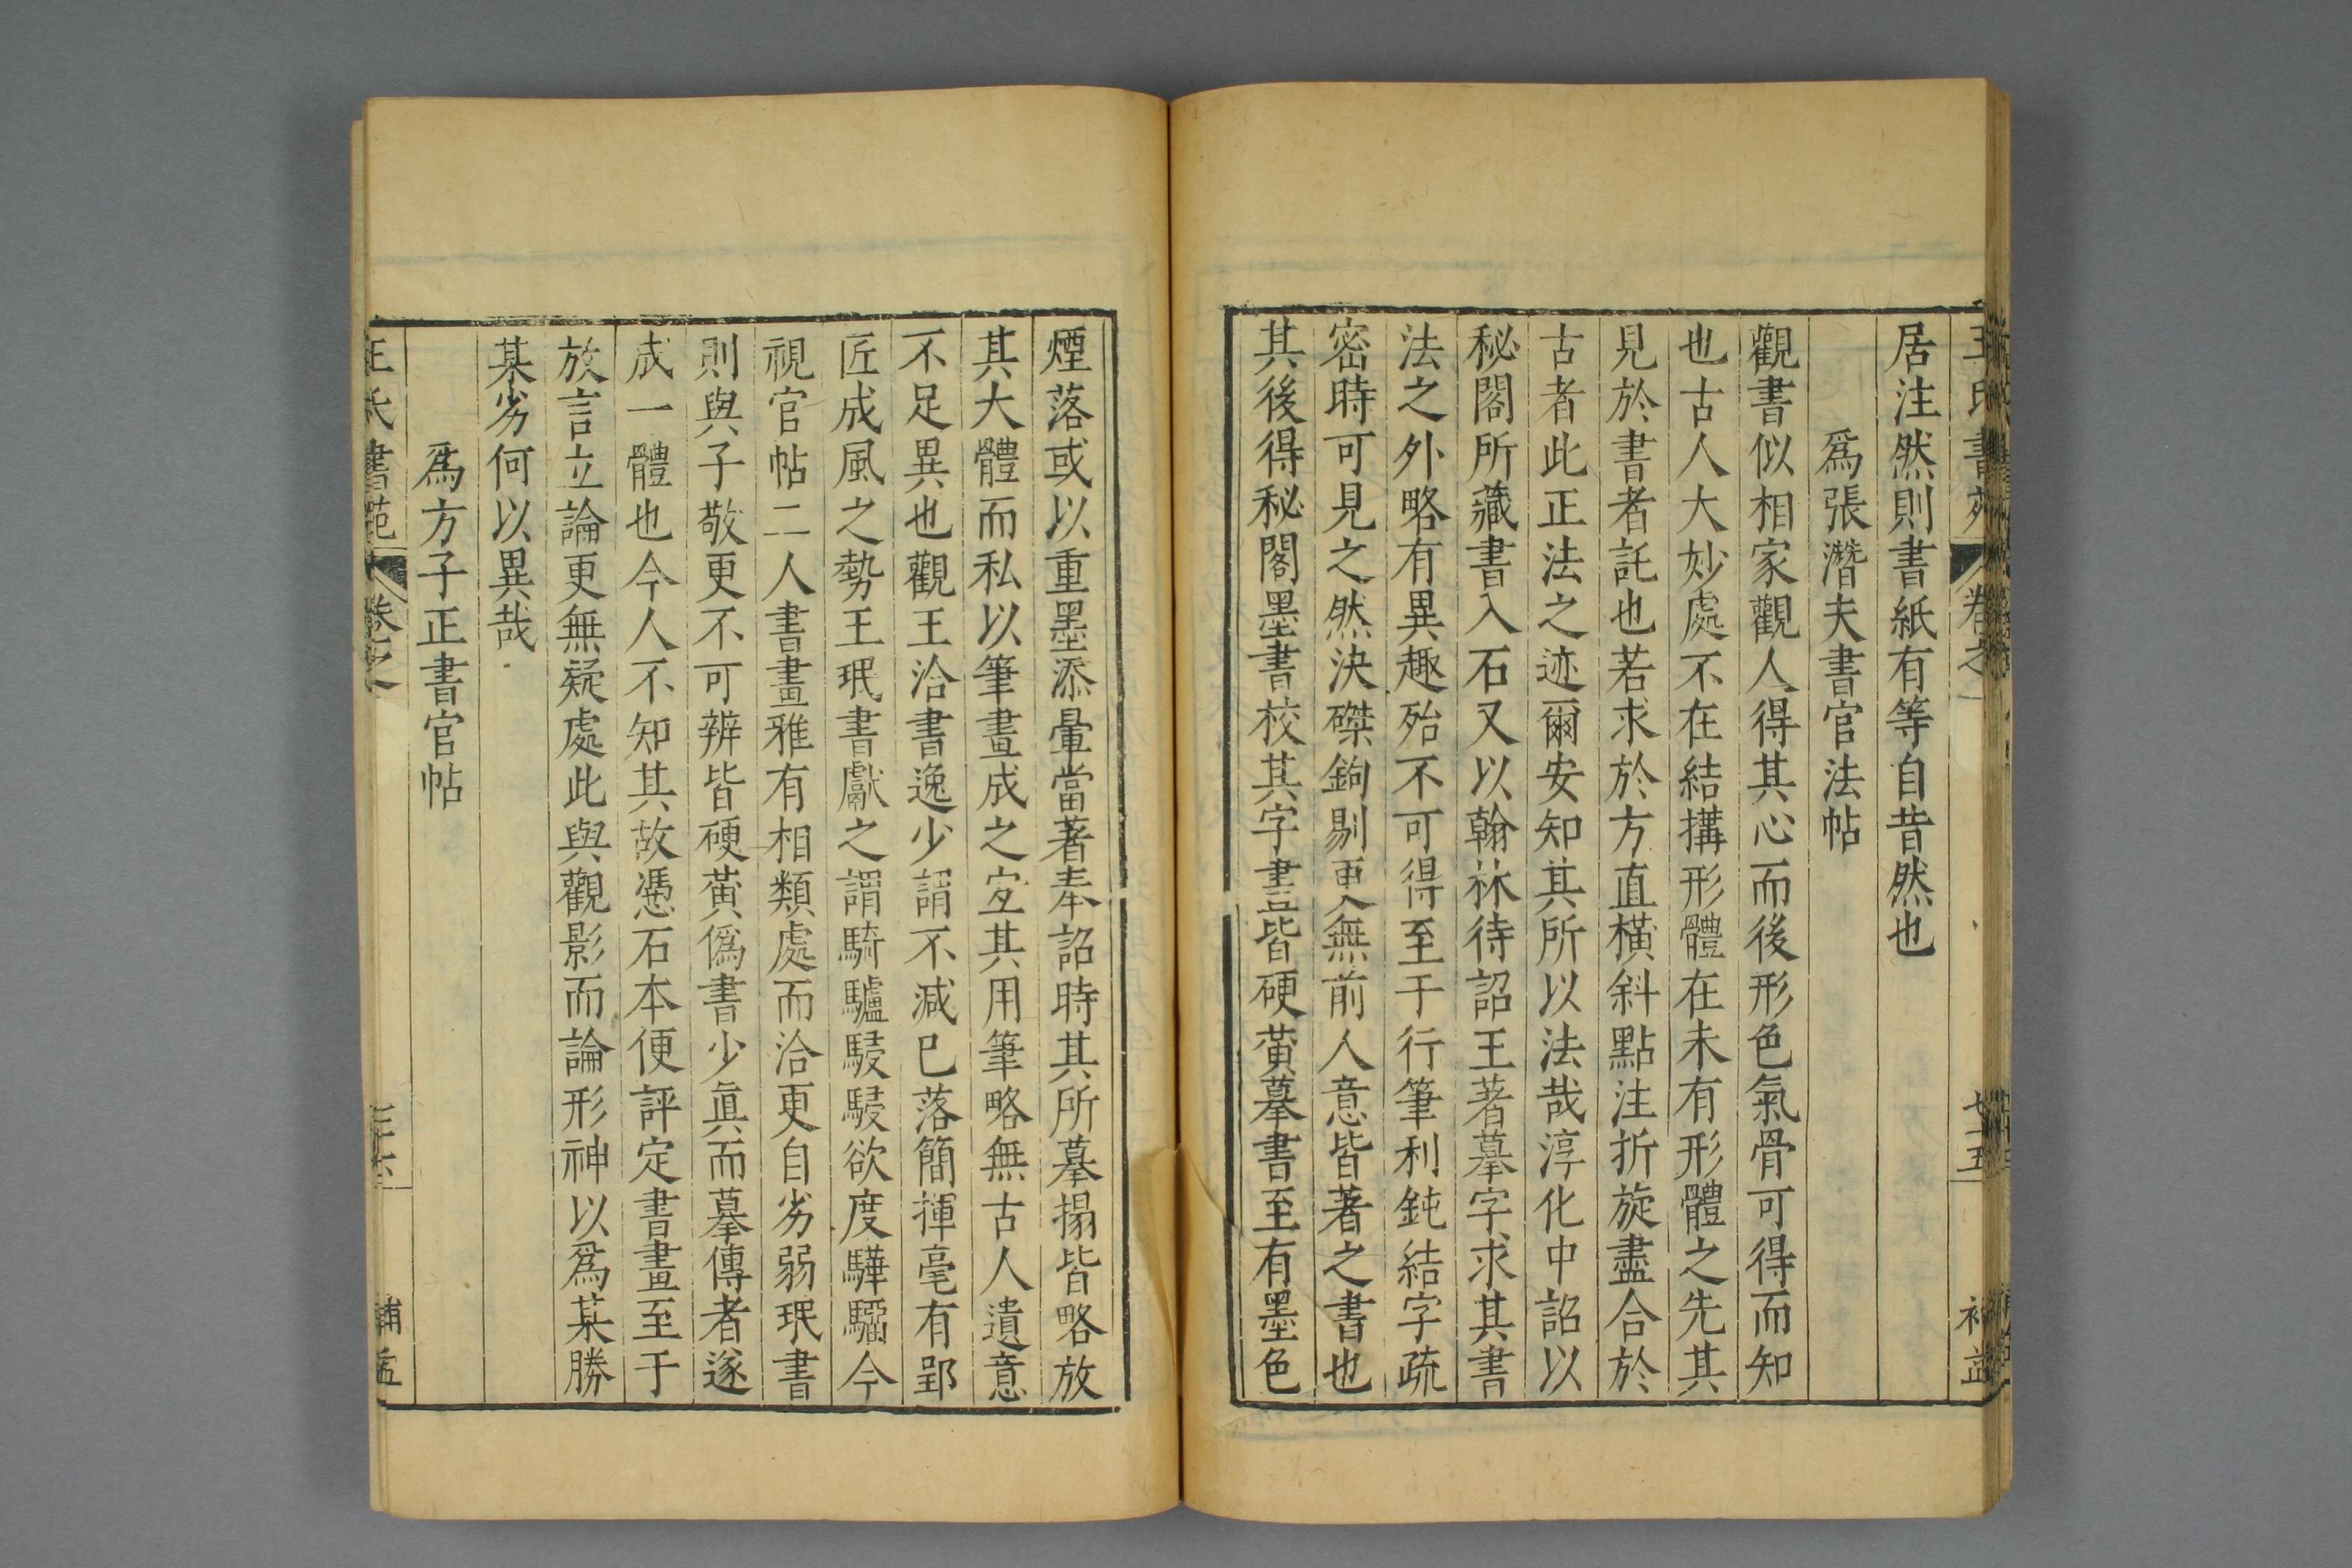 居注然則書紙有等自昔然也
爲張潛夫書官法帖
觀書似相家觀人得其心而後形色氣骨可得而知
也古人大妙處不在結搆形體在未有形體之先其
見於書者託也若求於方直橫斜點注折旋盡合於
古者此正法之迹爾安知其所以法哉淳化中詔以
秘閣所藏書入石又以翰林待詔王著摹字求其書
法之外略有異趣殆不可得至于行筆利鈍結字疏
密時可見之然決磔鉤剔更無前人意皆著之書也
其後得秘閣墨書校其字畫皆硬黃摹書至有墨色
煙落或以重墨添暈當著奉詔時其所摹搨皆略放
其大體而私以筆畫成之宐其用筆略無古人遺意
不足異也觀王洽書逸少謂不減巳落簡揮毫有郢
匠成風之勢王珉書獻之謂騎驢駸駸欲度驊騮今
視官帖二人書畫雅有相類處而洽更自劣弱珉書
則與子敬更不可辨皆硬黃僞書少眞而摹傳者遂
成一體也今人不知其故憑石本便評定書畫至于
放言立論更無疑處此與觀影而論形神以爲某勝
某劣何以異哉
爲方子正書官帖
王氏書苑 卷之